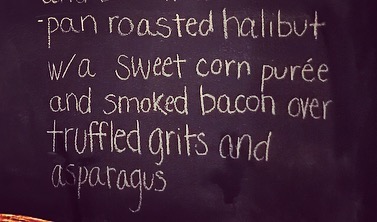 -pan roasted halibut
w/a sweet corn purée
and smoked bacon over
truffled grits and
asparagus